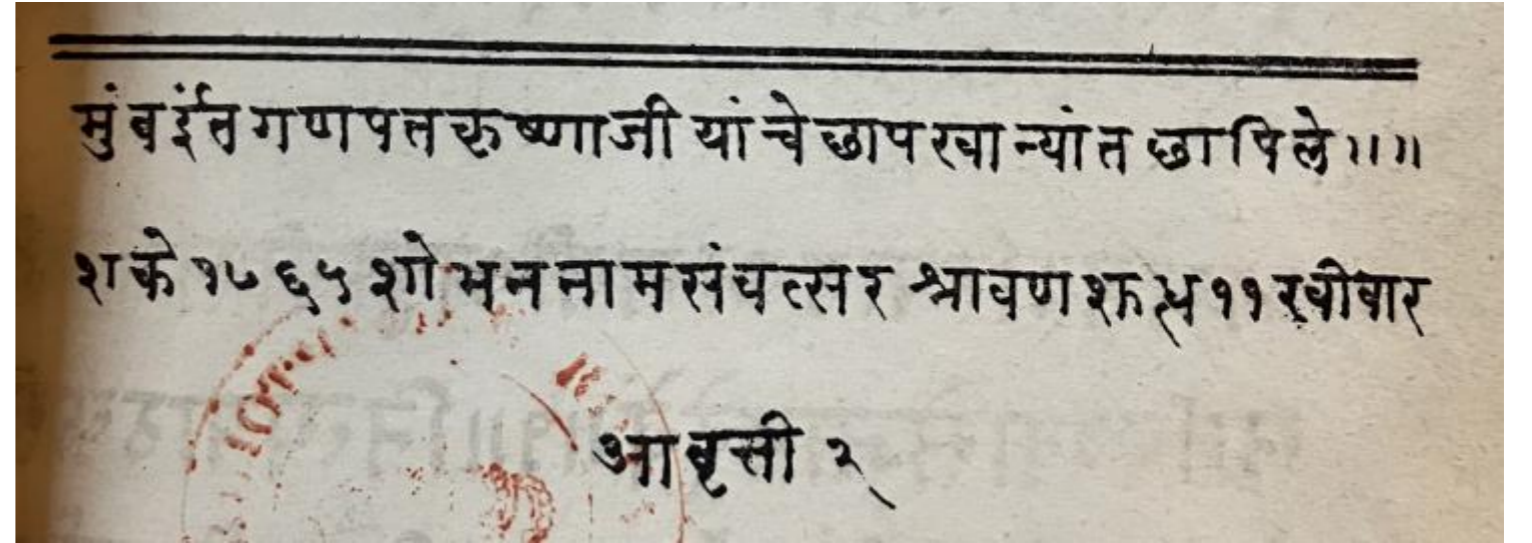 मुंबईंत गणपत कृष्णाजी यांचे छापखान्यांत छापिले ॥॥
शके १७६५ शोभननाम संवत्सर श्रावण शुद्ध ११ रवीवार
आवृत्ती २